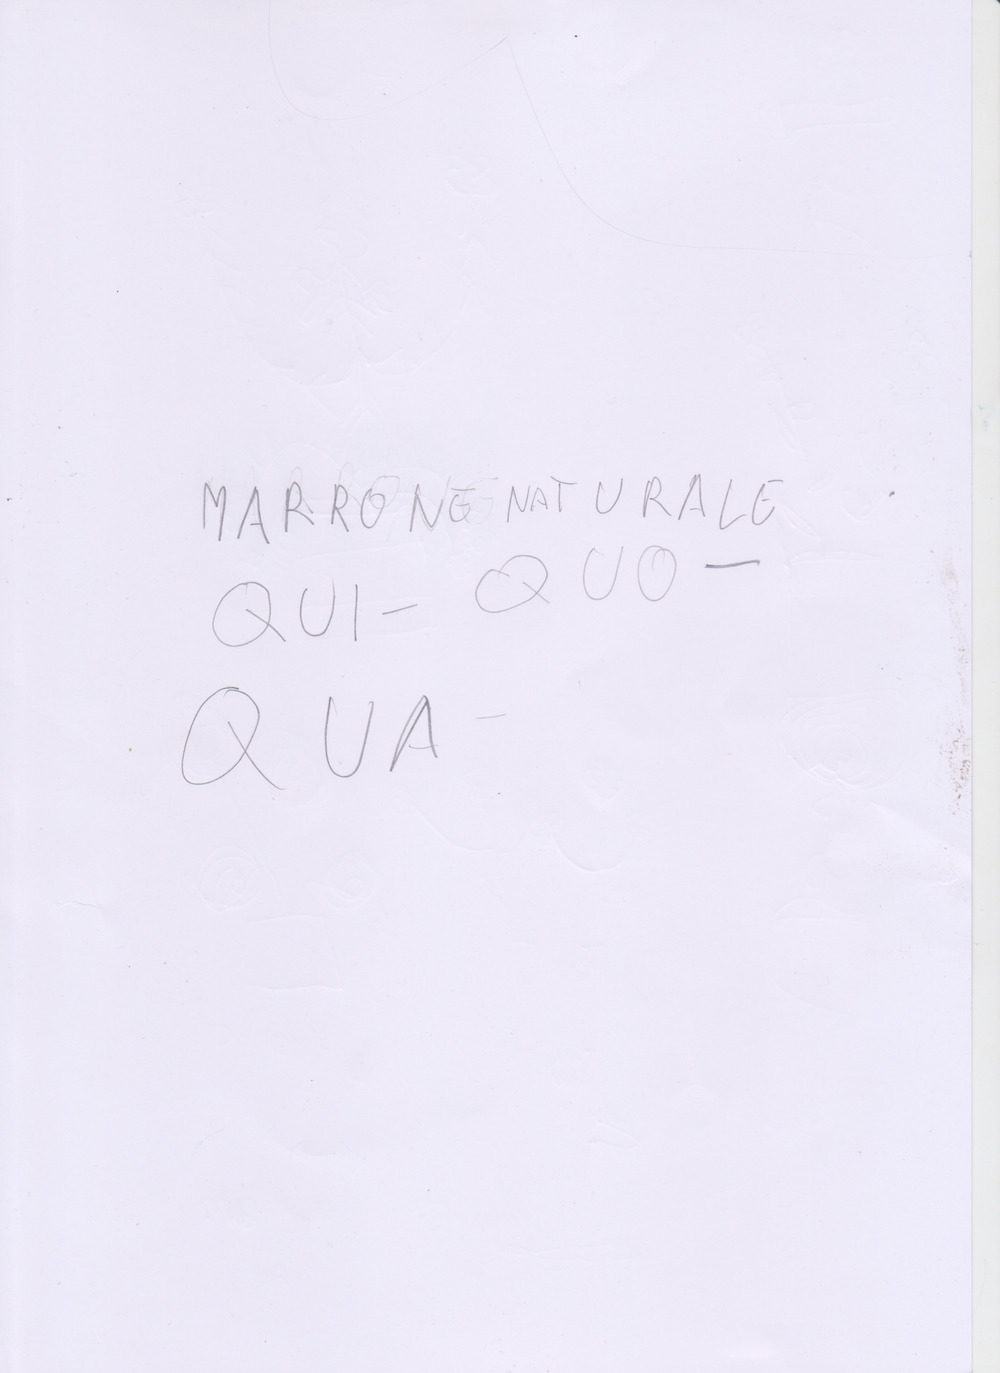 MARRONE NATURALE
QUI- QUO-
QUA-